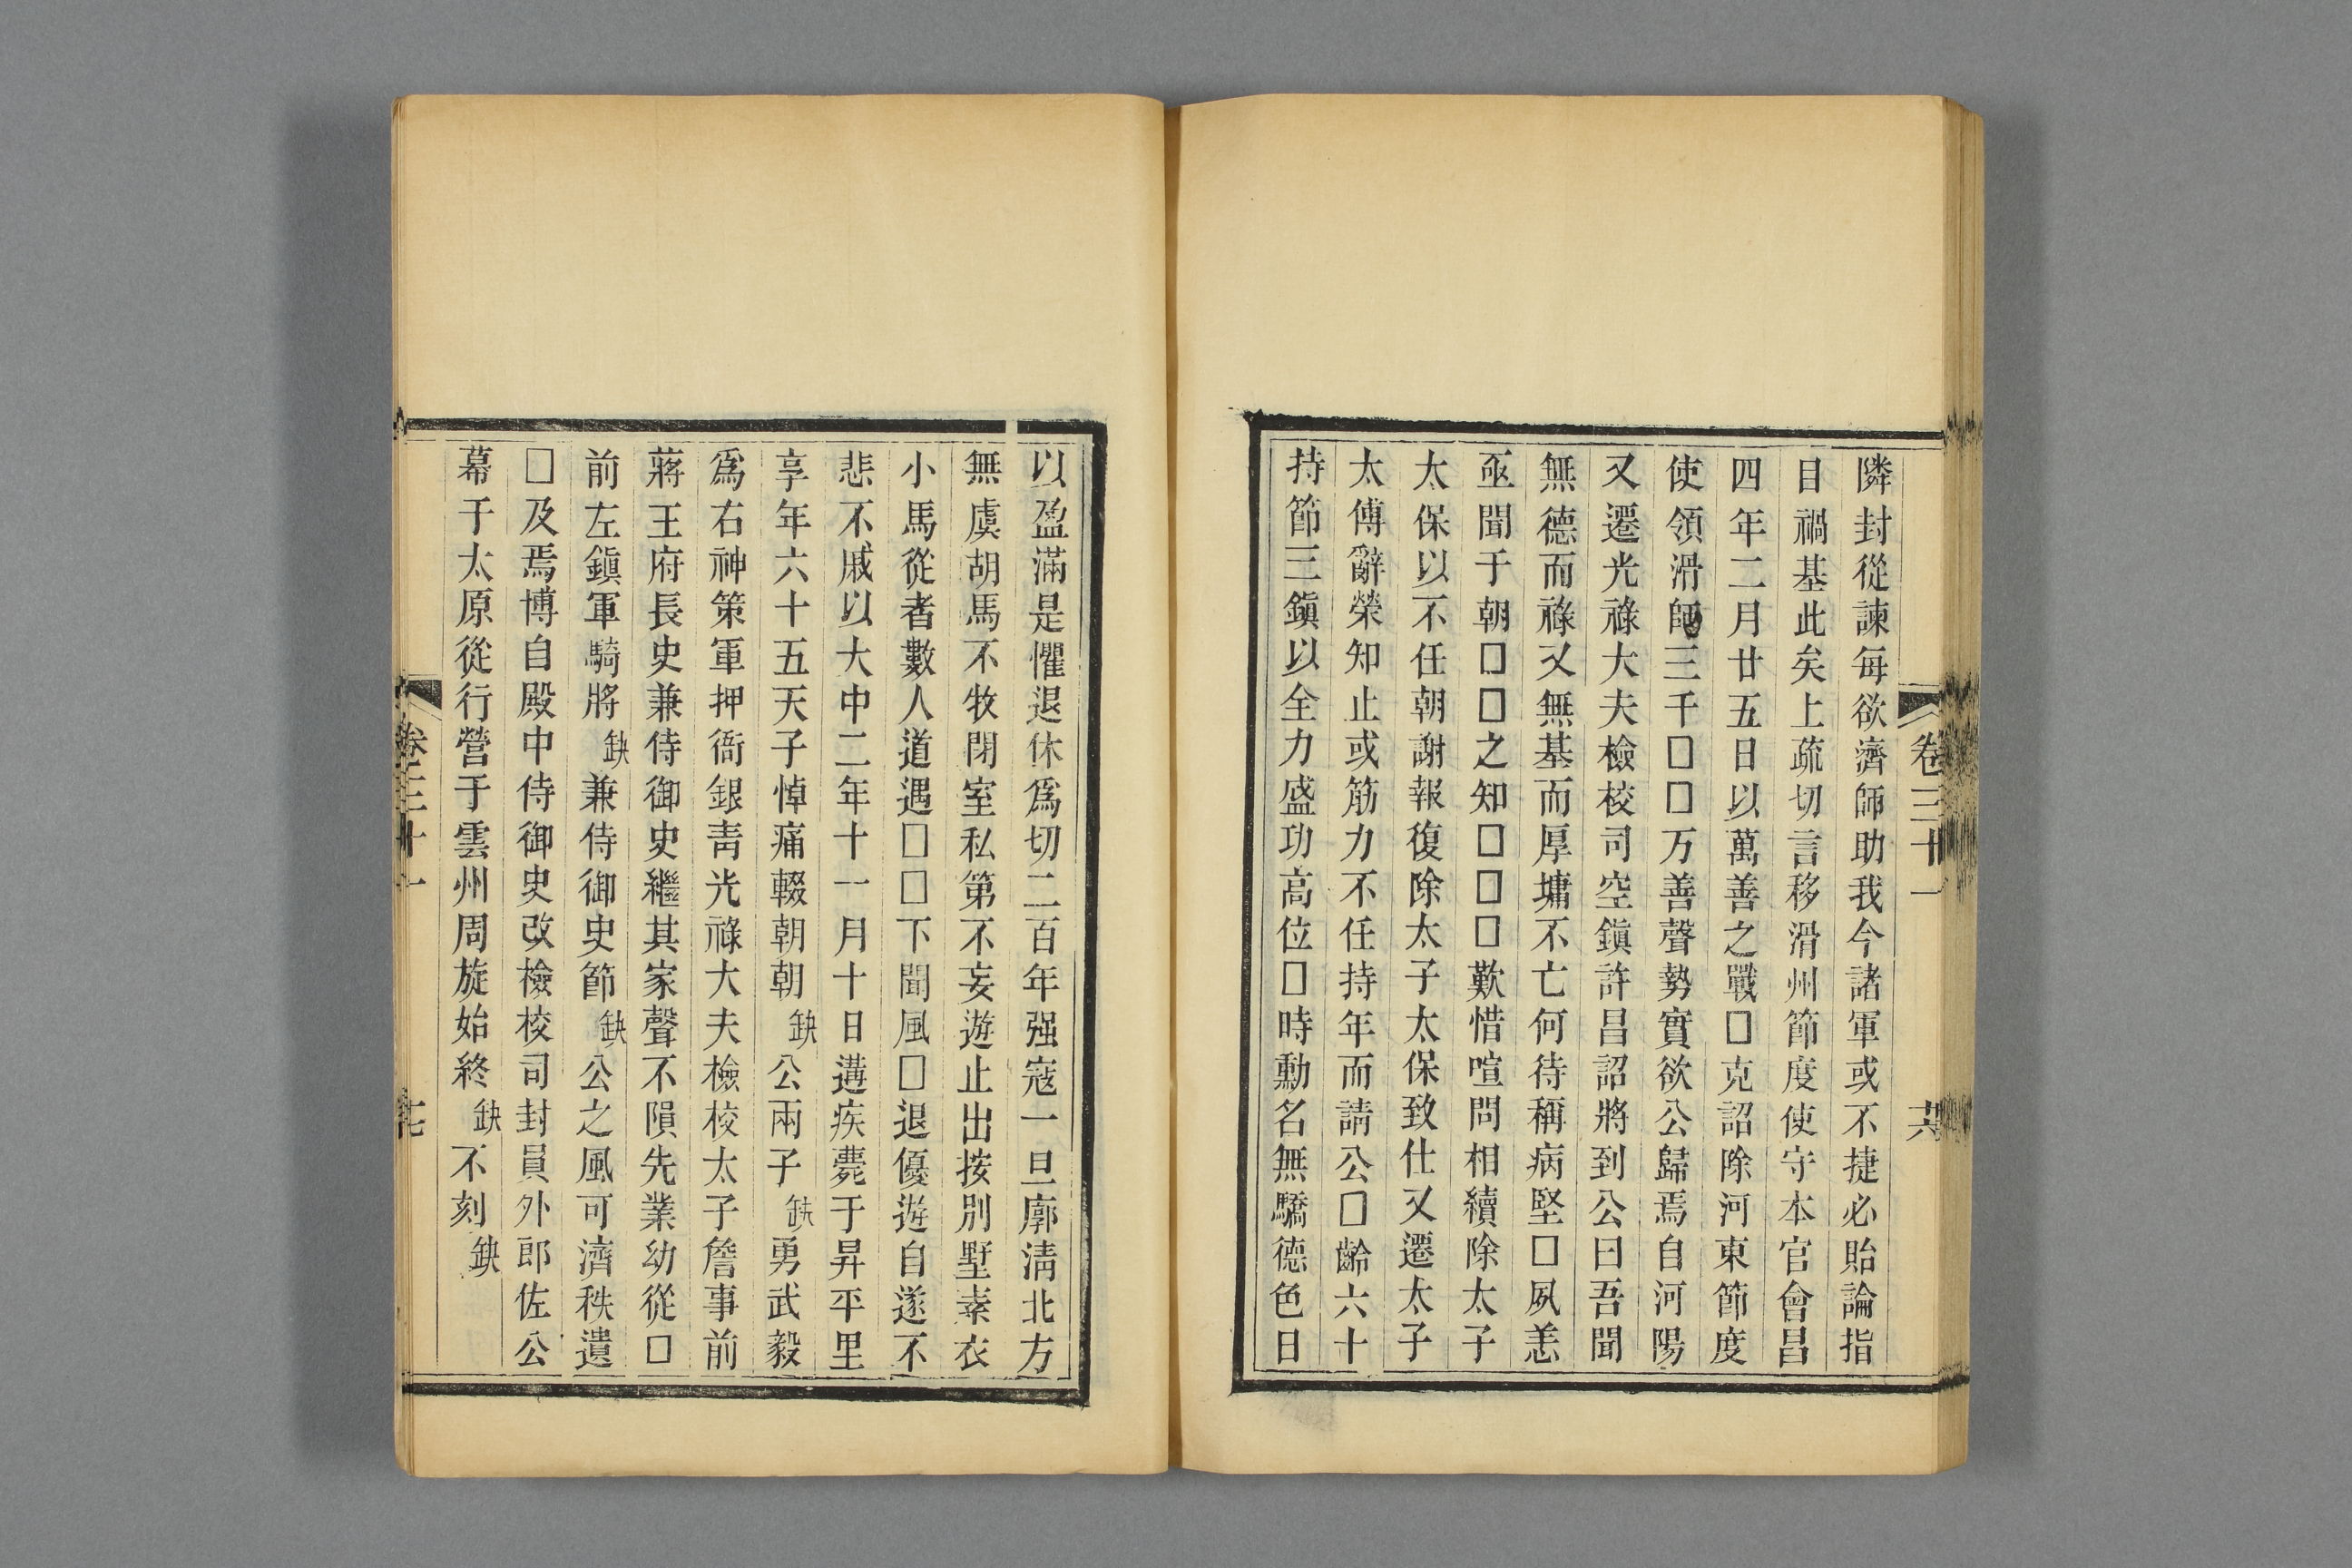 卷三十一 六
隣封從諫每欲濟師助我今諸軍或不捷必貽論指
目禍基此矣上疏切言移滑州節度使守本官會昌
四年二月廿五日以萬善之戰□克詔除河東節度
使領滑師三千□□万善聲勢實欲公歸焉自河陽
又遷光祿大夫檢校司空鎭許昌詔將到公曰吾聞
無德而祿又無基而厚墉不亡何待稱病堅□夙恙
亟聞于朝□□之知□□□歎惜喧問相續除太子
太保以不任朝謝報復除太子太保致仕又遷太子
太傅辭榮知止或筋力不任持年而請公□齡六十
持節三鎭以全力盛功高位□時勳名無驕德色日
以盈滿是懼退休爲切二百年强寇一旦廓淸北方
無虞胡馬不牧閉室私第不妄遊止出按別墅素衣
小馬從者數人道遇□□下聞風□退優遊自遂不
悲不戚以大中二年十一月十日遘疾薨于昇平里
享年六十五天子悼痛輟朝朝缺公兩子缺勇武毅
爲右神策軍押衙銀靑光祿大夫檢校太子詹事前
蔣王府長史兼侍御史繼其家聲不隕先業幼從□
前左鎭軍騎將缺兼侍御史節缺公之風可濟秩遺
□及焉博自殿中侍御史改檢校司封員外郎佐公
幕于太原從行營于雲州周旋始終缺不刻缺
卷三十一